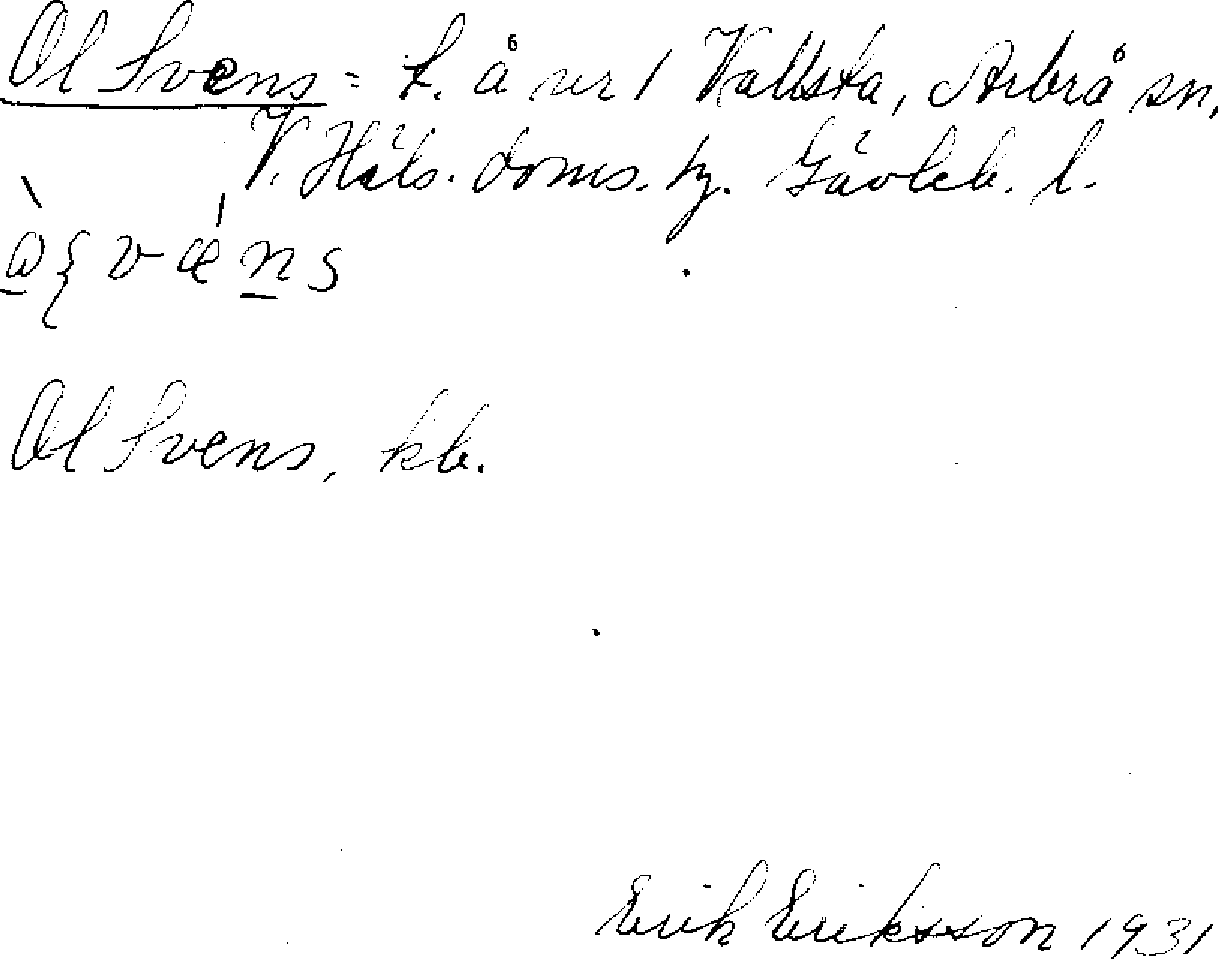 Ol Svens = L. å nr 1 Vallsta, Arbrå sn,
V. Häls. doms. hg. Gävleb. l.
Ol Svens, kb.
Erik Eriksson 1931